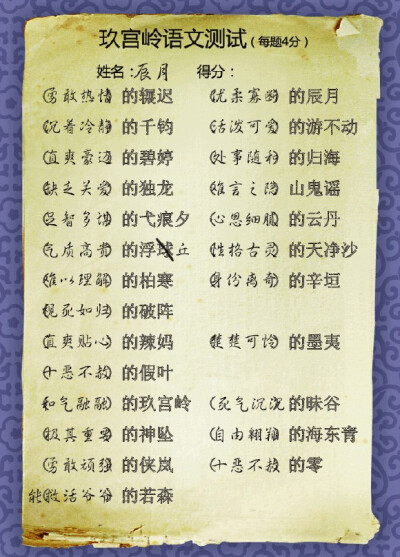 玖宫岭语文测试（每题4分）
姓名：辰月 得分：
(勇敢热情 的辗迟 (优柔寡断 的辰月
(沉着冷静 的千钧 (活泼可爱 的游不动
(直爽豪迈 的碧婷 (处事随和 的归海
(缺乏关爱 的独龙 (难言之隐 山鬼谣
(足智多谋 的弋痕夕 (心思细腻 的云丹
(气质高贵 的浮球丘 (性格古灵 的天净沙
(难以理解 的柏寒 (身份离奇 的辛垣
(视死如归 的破阵
(直爽贴心 的辣妈 (楚楚可怜 的墨夷
(十恶不赦 的假叶
(和气融融 的玖宫岭 (死气沉沉 的昧谷
(极其重要 的神坠 (自由翱翔 的海东青
(勇敢顽强 的侠岚 (十恶不赦 的零
能救活爷爷 的若森